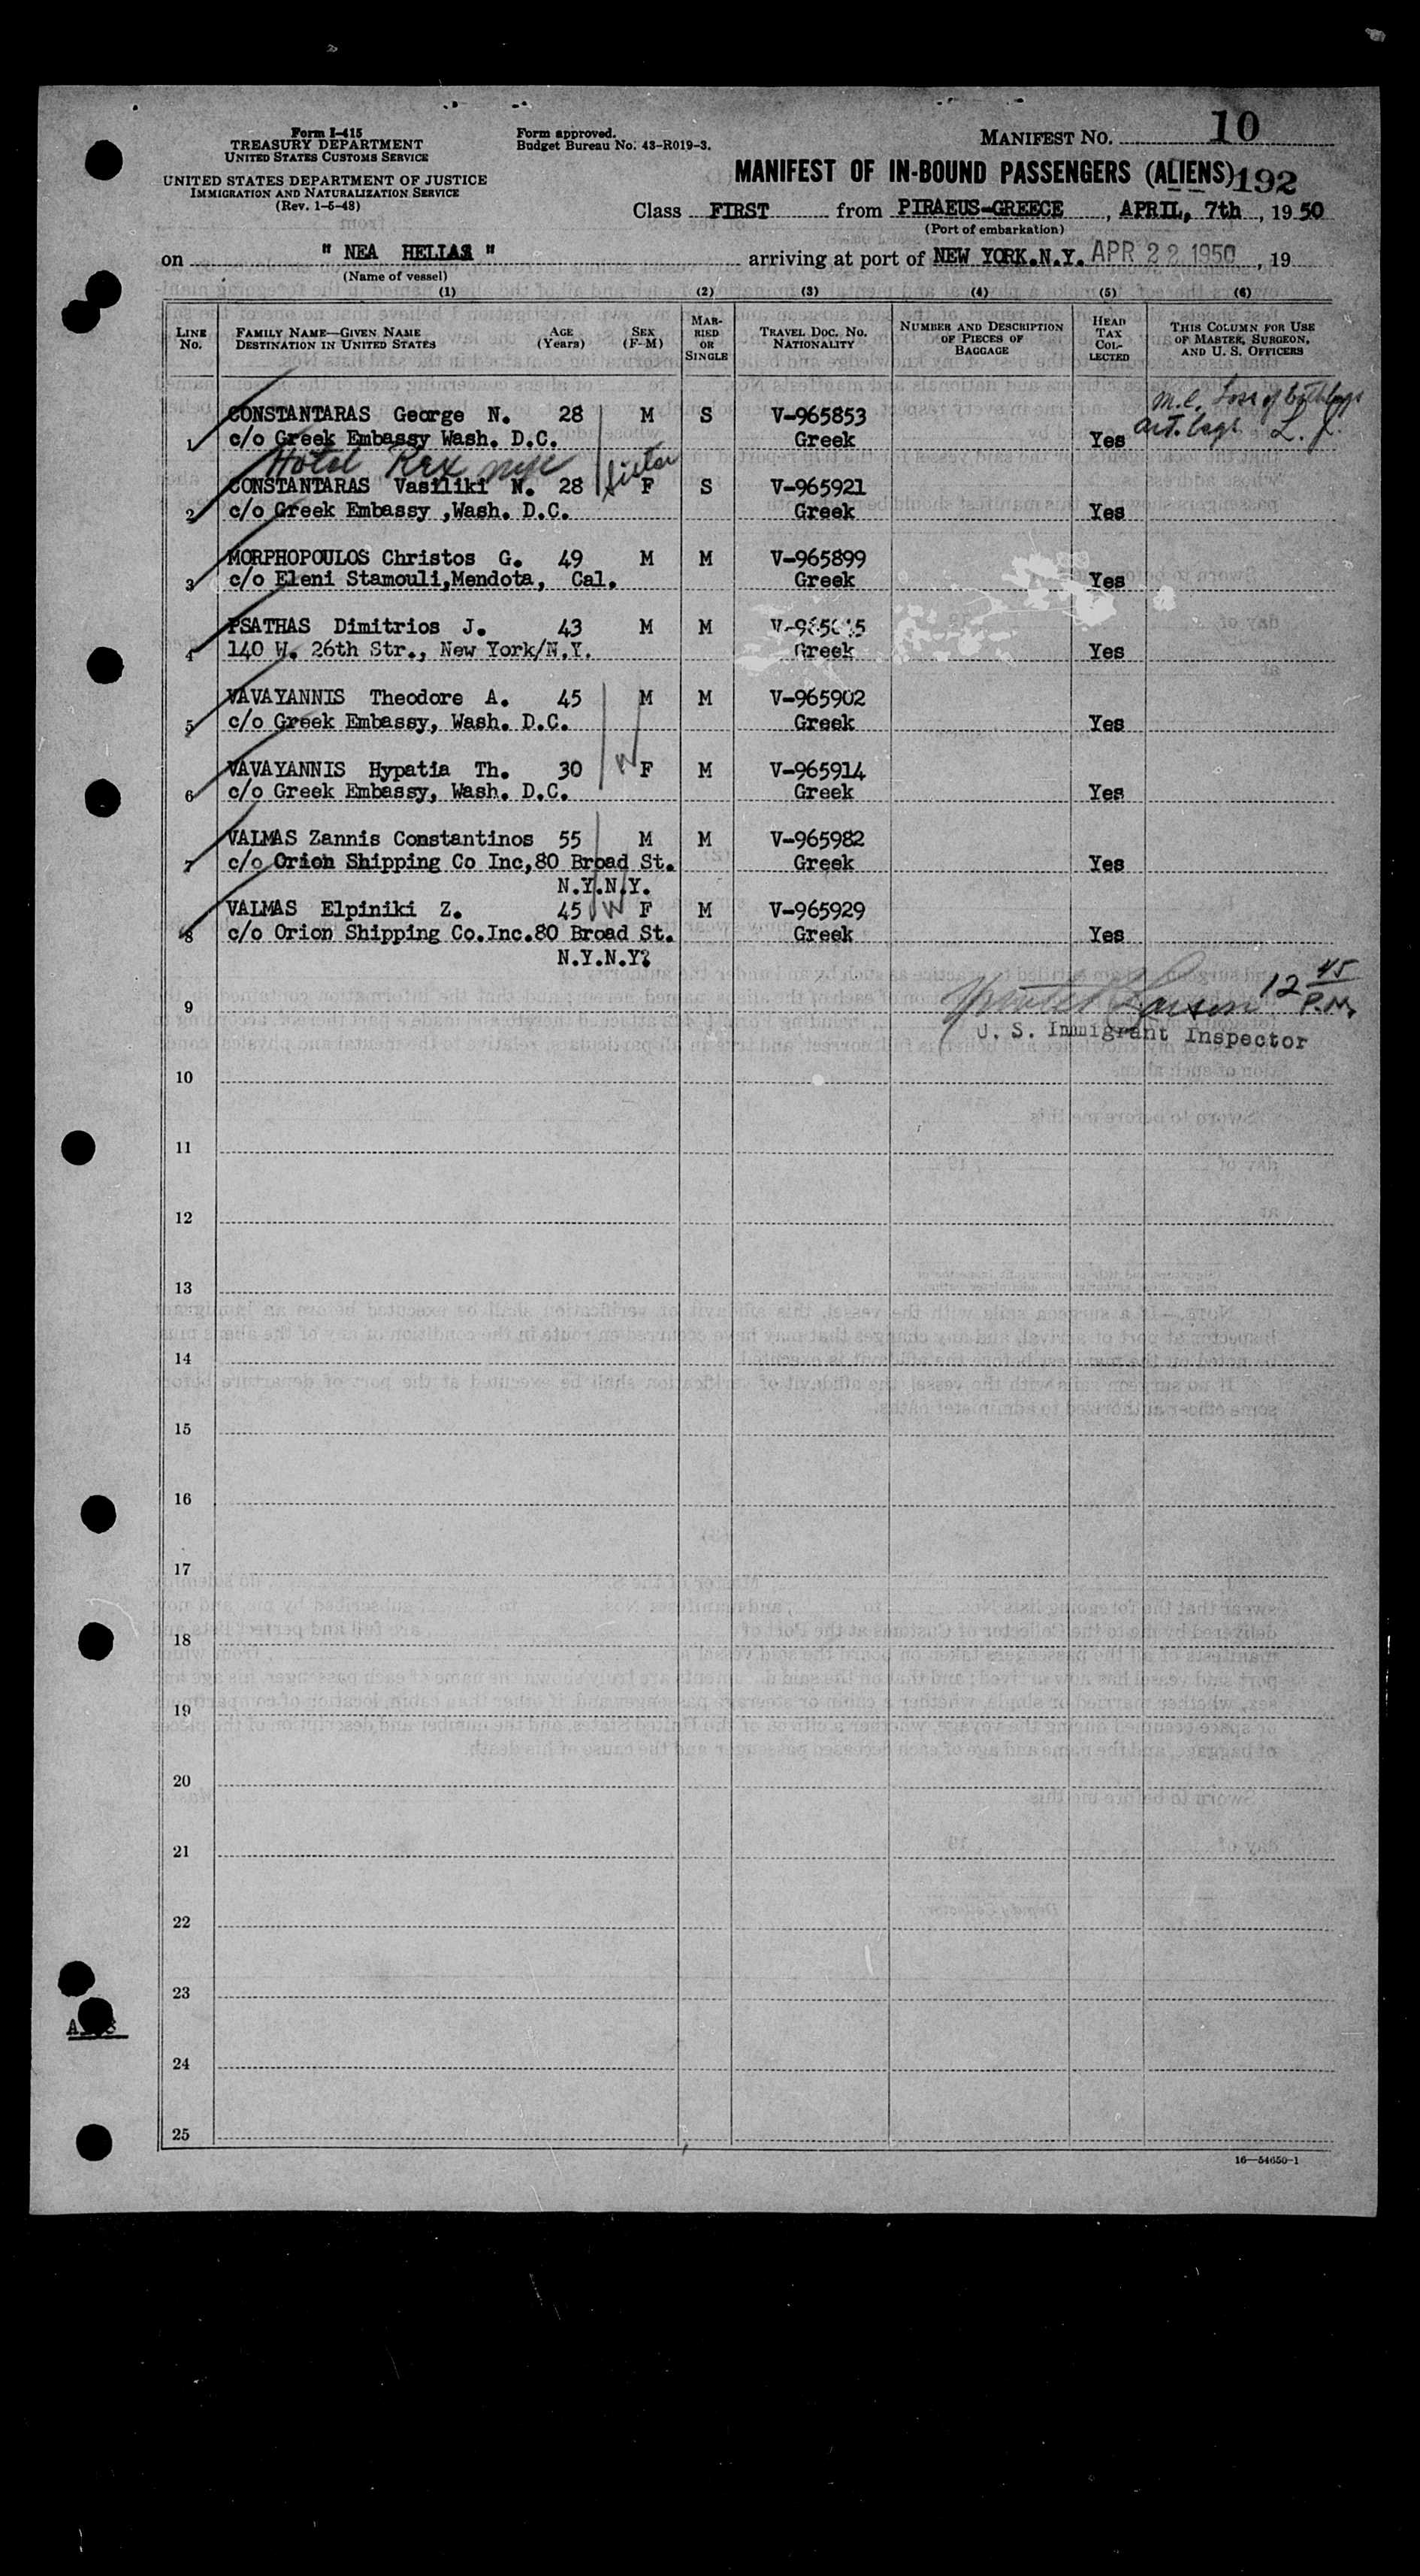 Form I-415
TREASURY DEPARTMENT
UNITED STATES CUSTOMS SERVICE
UNITED STATES DEPARTMENT OF JUSTICE
IMMIGRATION AND NATURALIZATION SERVICE
(Rev. 1-5-48)
Form approved.
Budget Bureau No. 43-R019-3.
MANIFEST NO. 10
MANIFEST OF IN-BOUND PASSENGERS (ALIENS) 192
Class FIRST from PIRAEUS-GREECE, APRIL, 7th, 1950
(Port of embarkation)
on " NEA HELLAS " arriving at port of NEW YORK.N.Y. APR 22 1950, 19
(Name of vessel)
(1) (2) (3) (4) (5) (6)
LINE No. FAMILY NAME—GIVEN NAME DESTINATION IN UNITED STATES AGE (Years) SEX (F-M) MARRIED OR SINGLE TRAVEL DOC. NO. NATIONALITY NUMBER AND DESCRIPTION OF PIECES OF BAGGAGE HEAD TAX COLLECTED THIS COLUMN FOR USE OF MASTER, SURGEON, AND U. S. OFFICERS
CONSTANTARAS George N. 28 M S V-965853 m.c. Loss of both legs
1 c/o Greek Embassy Wash. D.C. Greek Yes art. legs L.
Hotel Rex nyc sister
CONSTANTARAS Vasiliki N. 28 F S V-965921
2 c/o Greek Embassy ,Wash. D.C. Greek Yes
MORPHOPOULOS Christos G. 49 M M V-965899
3 c/o Eleni Stamouli,Mendota, Cal. Greek Yes
PSATHAS Dimitrios J. 43 M M
4 140 W. 26th Str., New York/N.Y. Greek Yes
VAVAYANNIS Theodore A. 45 M M V-965902
5 c/o Greek Embassy, Wash. D.C. Greek Yes
VAVAYANNIS Hypatia Th. 30 W F M V-965914
6 c/o Greek Embassy, Wash. D.C. Greek Yes
VALMAS Zannis Constantinos 55 M M V-965982
7 c/o Orion Shipping Co Inc,80 Broad St. Greek Yes
N.Y.N.Y.
VALMAS Elpiniki Z. 45 W F M V-965929
8 c/o Orion Shipping Co.Inc.80 Broad St. Greek Yes
N.Y.N.Y?
9 Larson 12 45 P.M.
U. S. Immigrant Inspector
10
11
12
13
14
15
16
17
18
19
20
21
22
23
24
25
16—54650-1